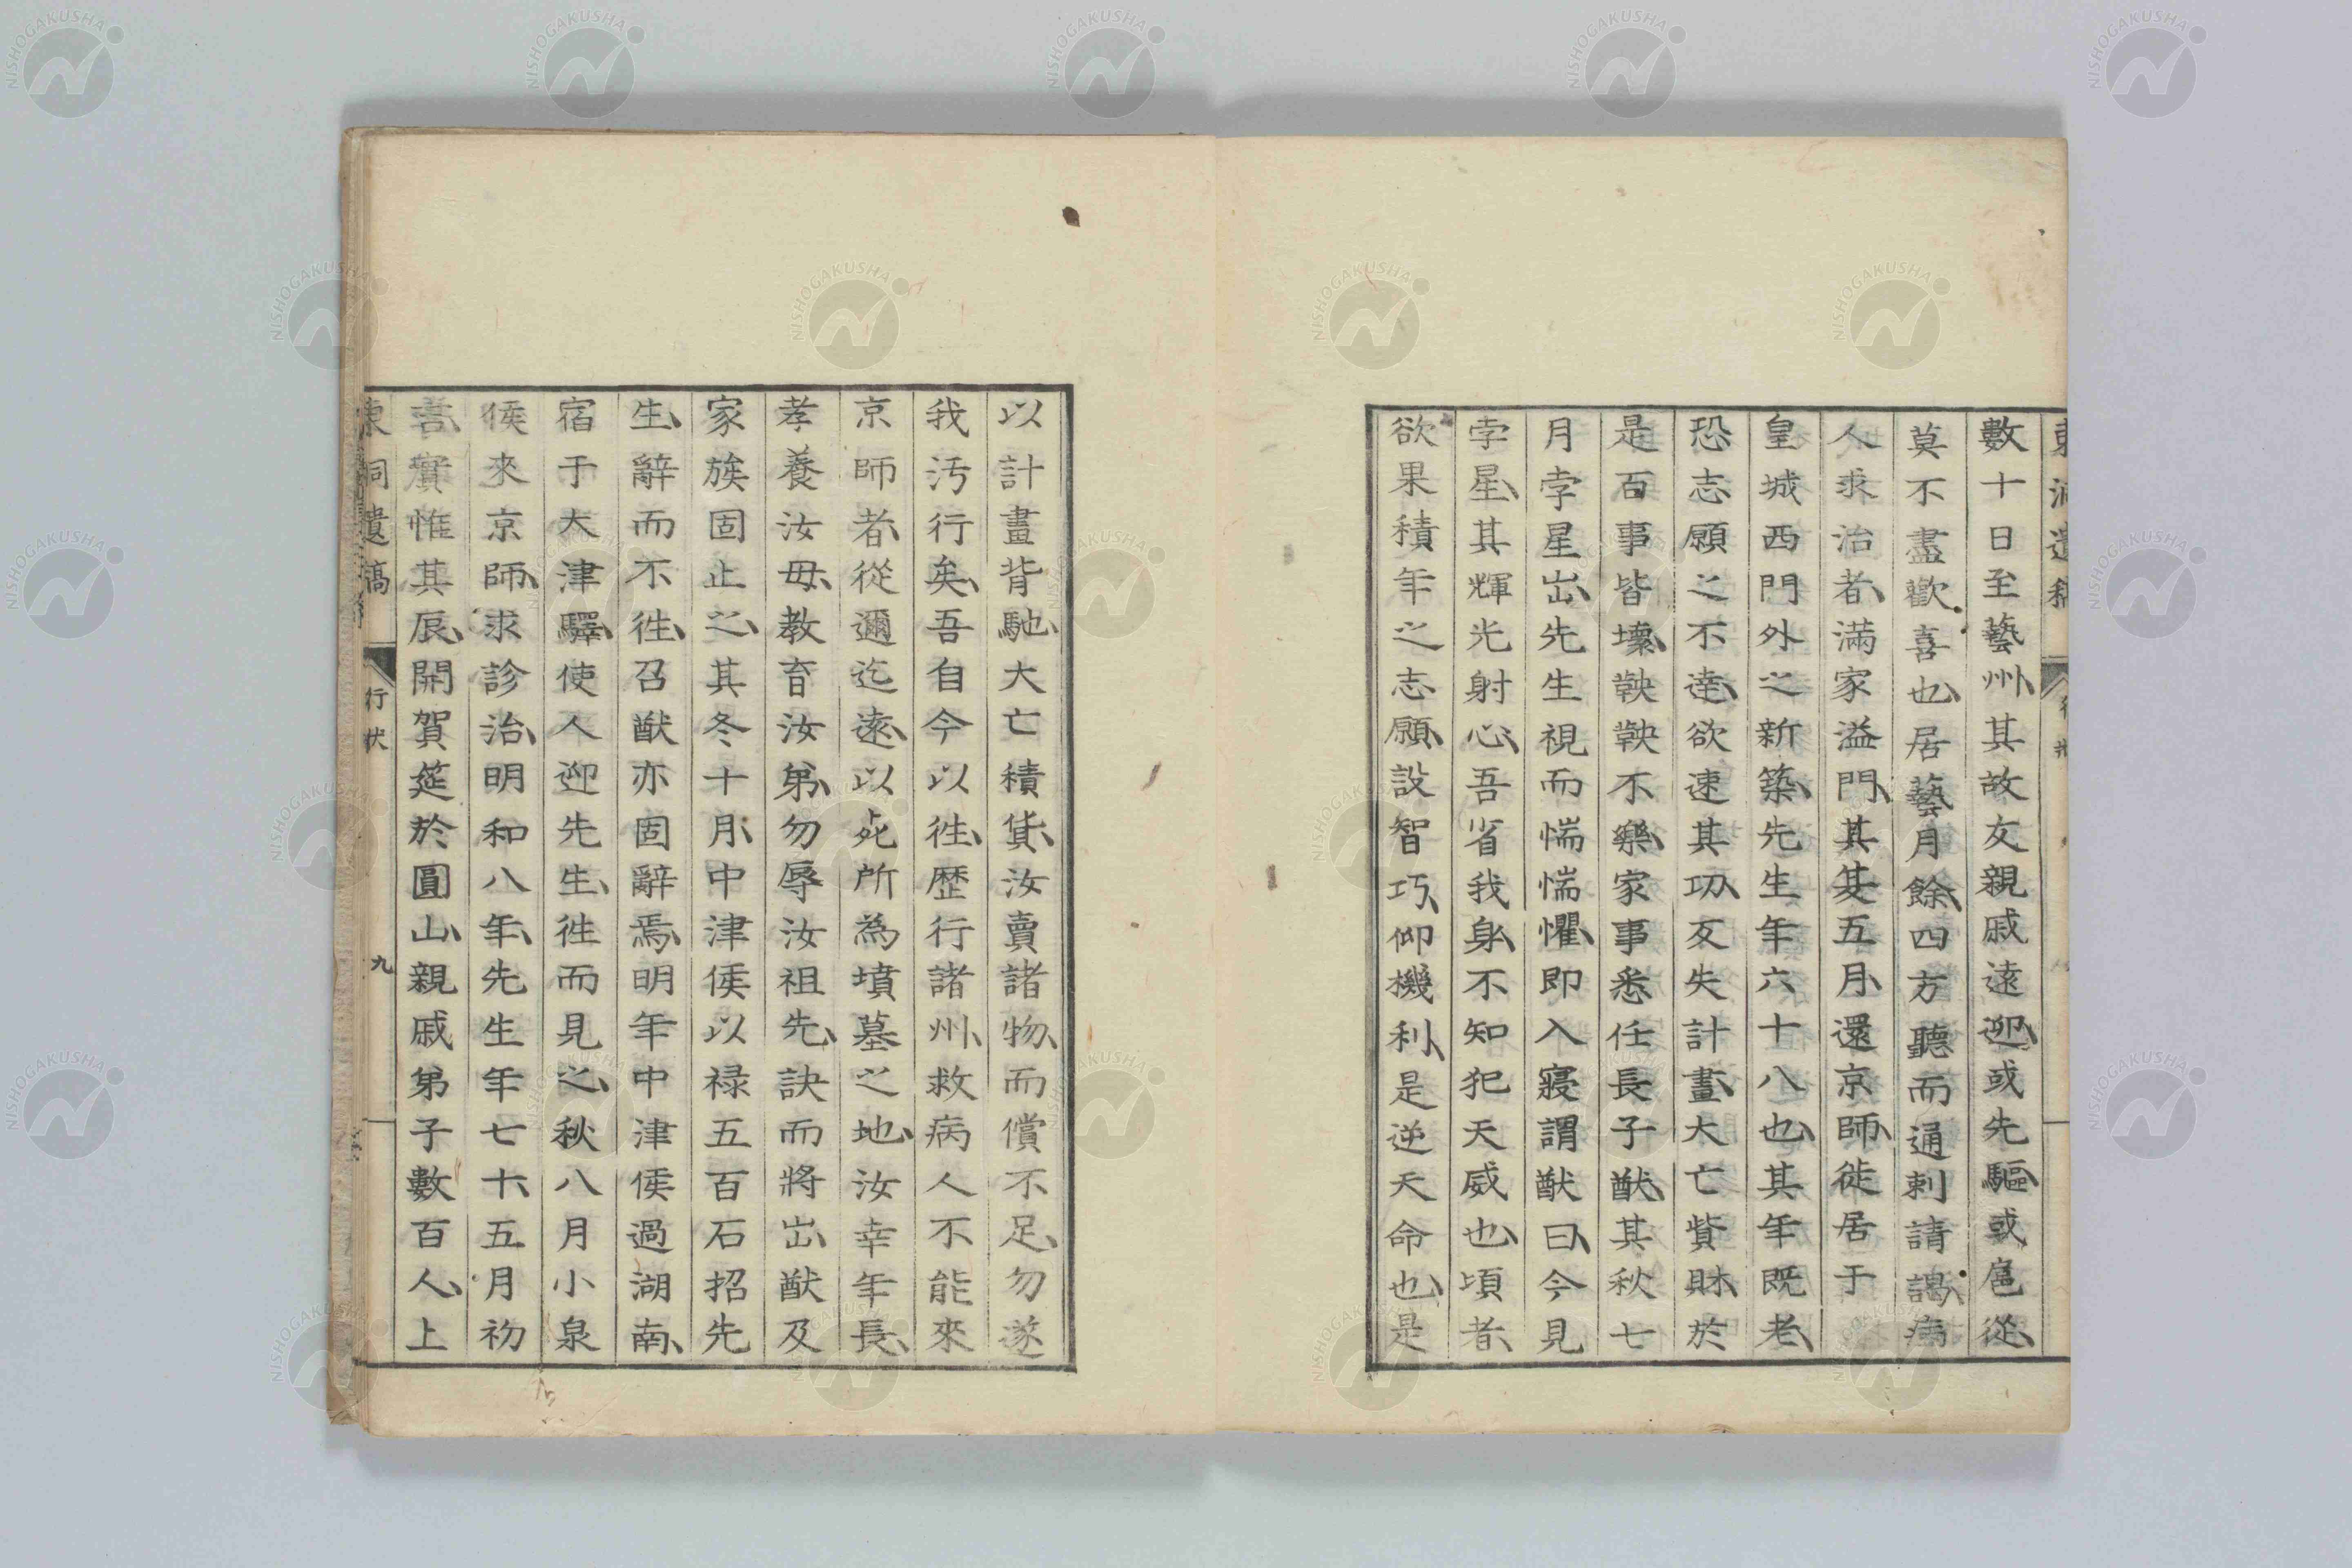 東洞遺稿
數十日至藝州、其故友親戚遠迎、或先驅、或扈從、
莫不盡歡喜也、居藝月餘、四方聽而通刺請謁、病
人求治者、滿家溢門、其英五月、還京師、徙居于
皇城西門外之新築、先生年六十八也、其年既老、
恐志願之不達、欲速其功、反失計畫、大亡貲財、於
是百事皆壞、鞅鞅不樂、家事悉任長子猷、其秋七
月孛星出、先生視而惴惴懼、即入寢謂猷曰、今見
孛星、其輝光射心、吾省我身、不知犯天威也、頃者、
欲果積年之志願、設智巧、仰機利、是逆天命也、是
以計畫背馳、大亡積貨、汝賣諸物、而償不足、勿遂
我汚行矣、吾自今以往、歷行諸州、救病人不能來
京師者、從邇迄遠、以死所為墳墓之地、汝幸年長、
孝養汝母、教育汝弟、勿辱汝祖先、訣而將出、猷及
家族固止之、其冬十月、中津侯以祿五百石招先
生、辭而不往、召猷亦固辭焉、明年中津侯過湖南、
宿于大津驛、使人迎先生、往而見之、秋八月小泉
侯來京師、求診治、明和八年、先生年七十、五月初
吉、實惟其辰、開賀筵於圓山、親戚弟子數百人、上
東洞遺稿 行狀 九